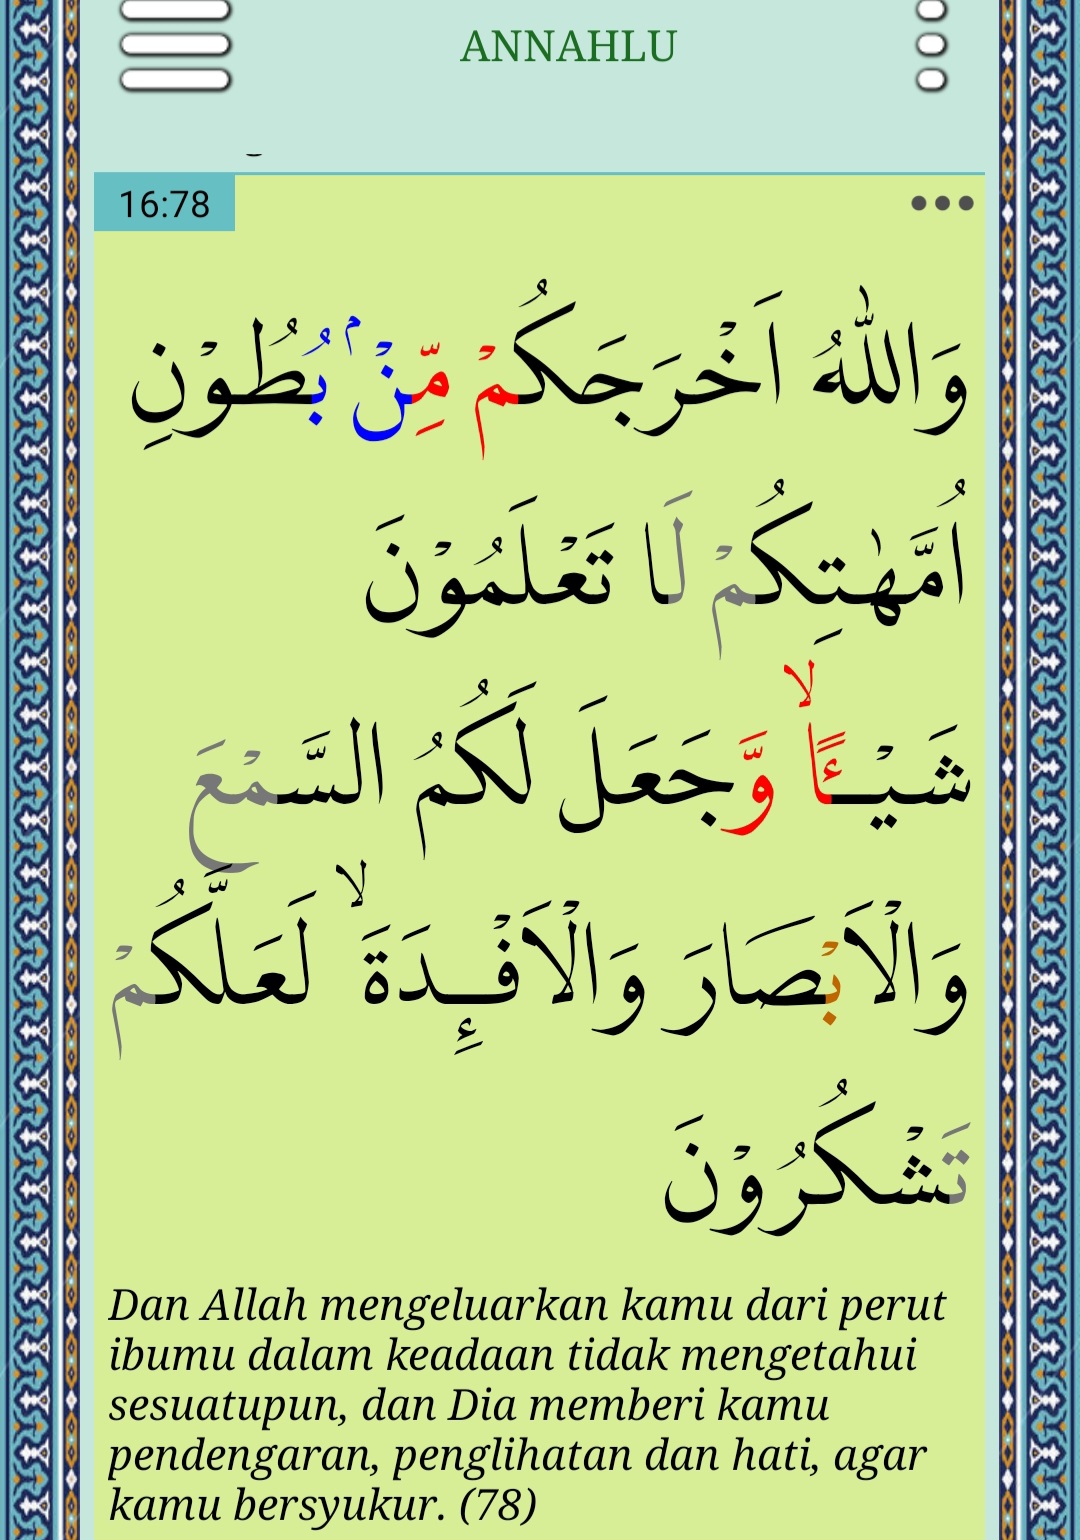 ANNAHLU
16:78
وَاللّٰهُ اَخْرَجَكُمْ مِّنْۢ بُطُوْنِ
اُمَّهٰتِكُمْ لَا تَعْلَمُوْنَ
شَيْـًٔاۙ وَّجَعَلَ لَكُمُ السَّمْعَ
وَالْاَبْصَارَ وَالْاَفْـِٕدَةَ ۙ لَعَلَّكُمْ
تَشْكُرُوْنَ
Dan Allah mengeluarkan kamu dari perut
ibumu dalam keadaan tidak mengetahui
sesuatupun, dan Dia memberi kamu
pendengaran, penglihatan dan hati, agar
kamu bersyukur. (78)